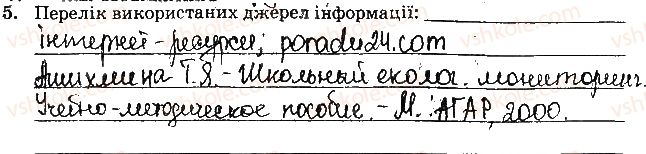 5. Перелік використаних джерел інформації:
інтернет-ресурси; poradu24.com
Ашихмина Т.Я. - Школьный эколог. мониторинг.
Учебно-методическое пособие. - М.: АГАР, 2000.